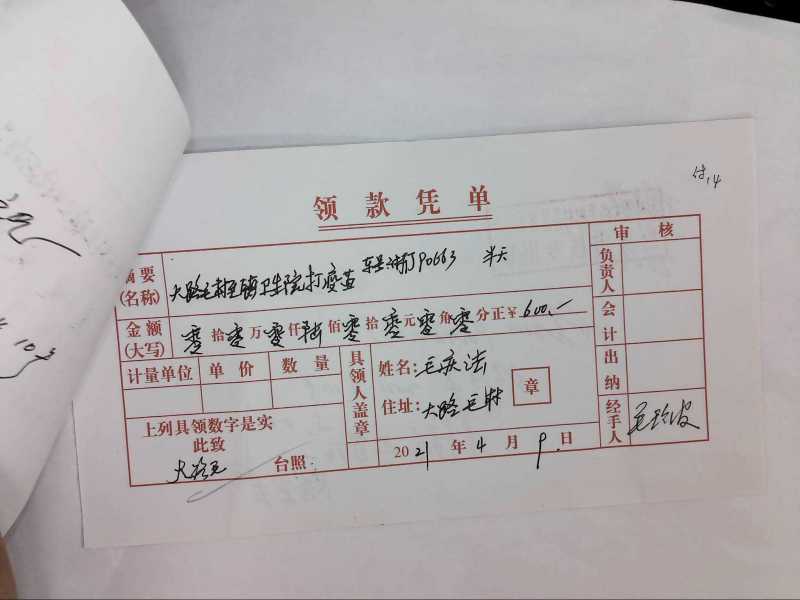 领款凭单
审核
摘要
(名称)
大路毛村至镇卫生院打疫苗 半天
负责人
金额
(大写)
零拾零万零仟陆佰零拾零元零角零分正¥600.—
会计
计量单位 单价 数量
具领人盖章
姓名:毛庆法
住址:大路毛村
章
出纳
上列具领数字是实
此致
大路毛 台照
2021年4月9日
经手人